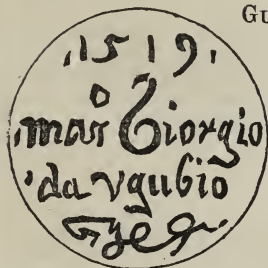 Gu
.1519.
o
mas Giorgio
da vgubio